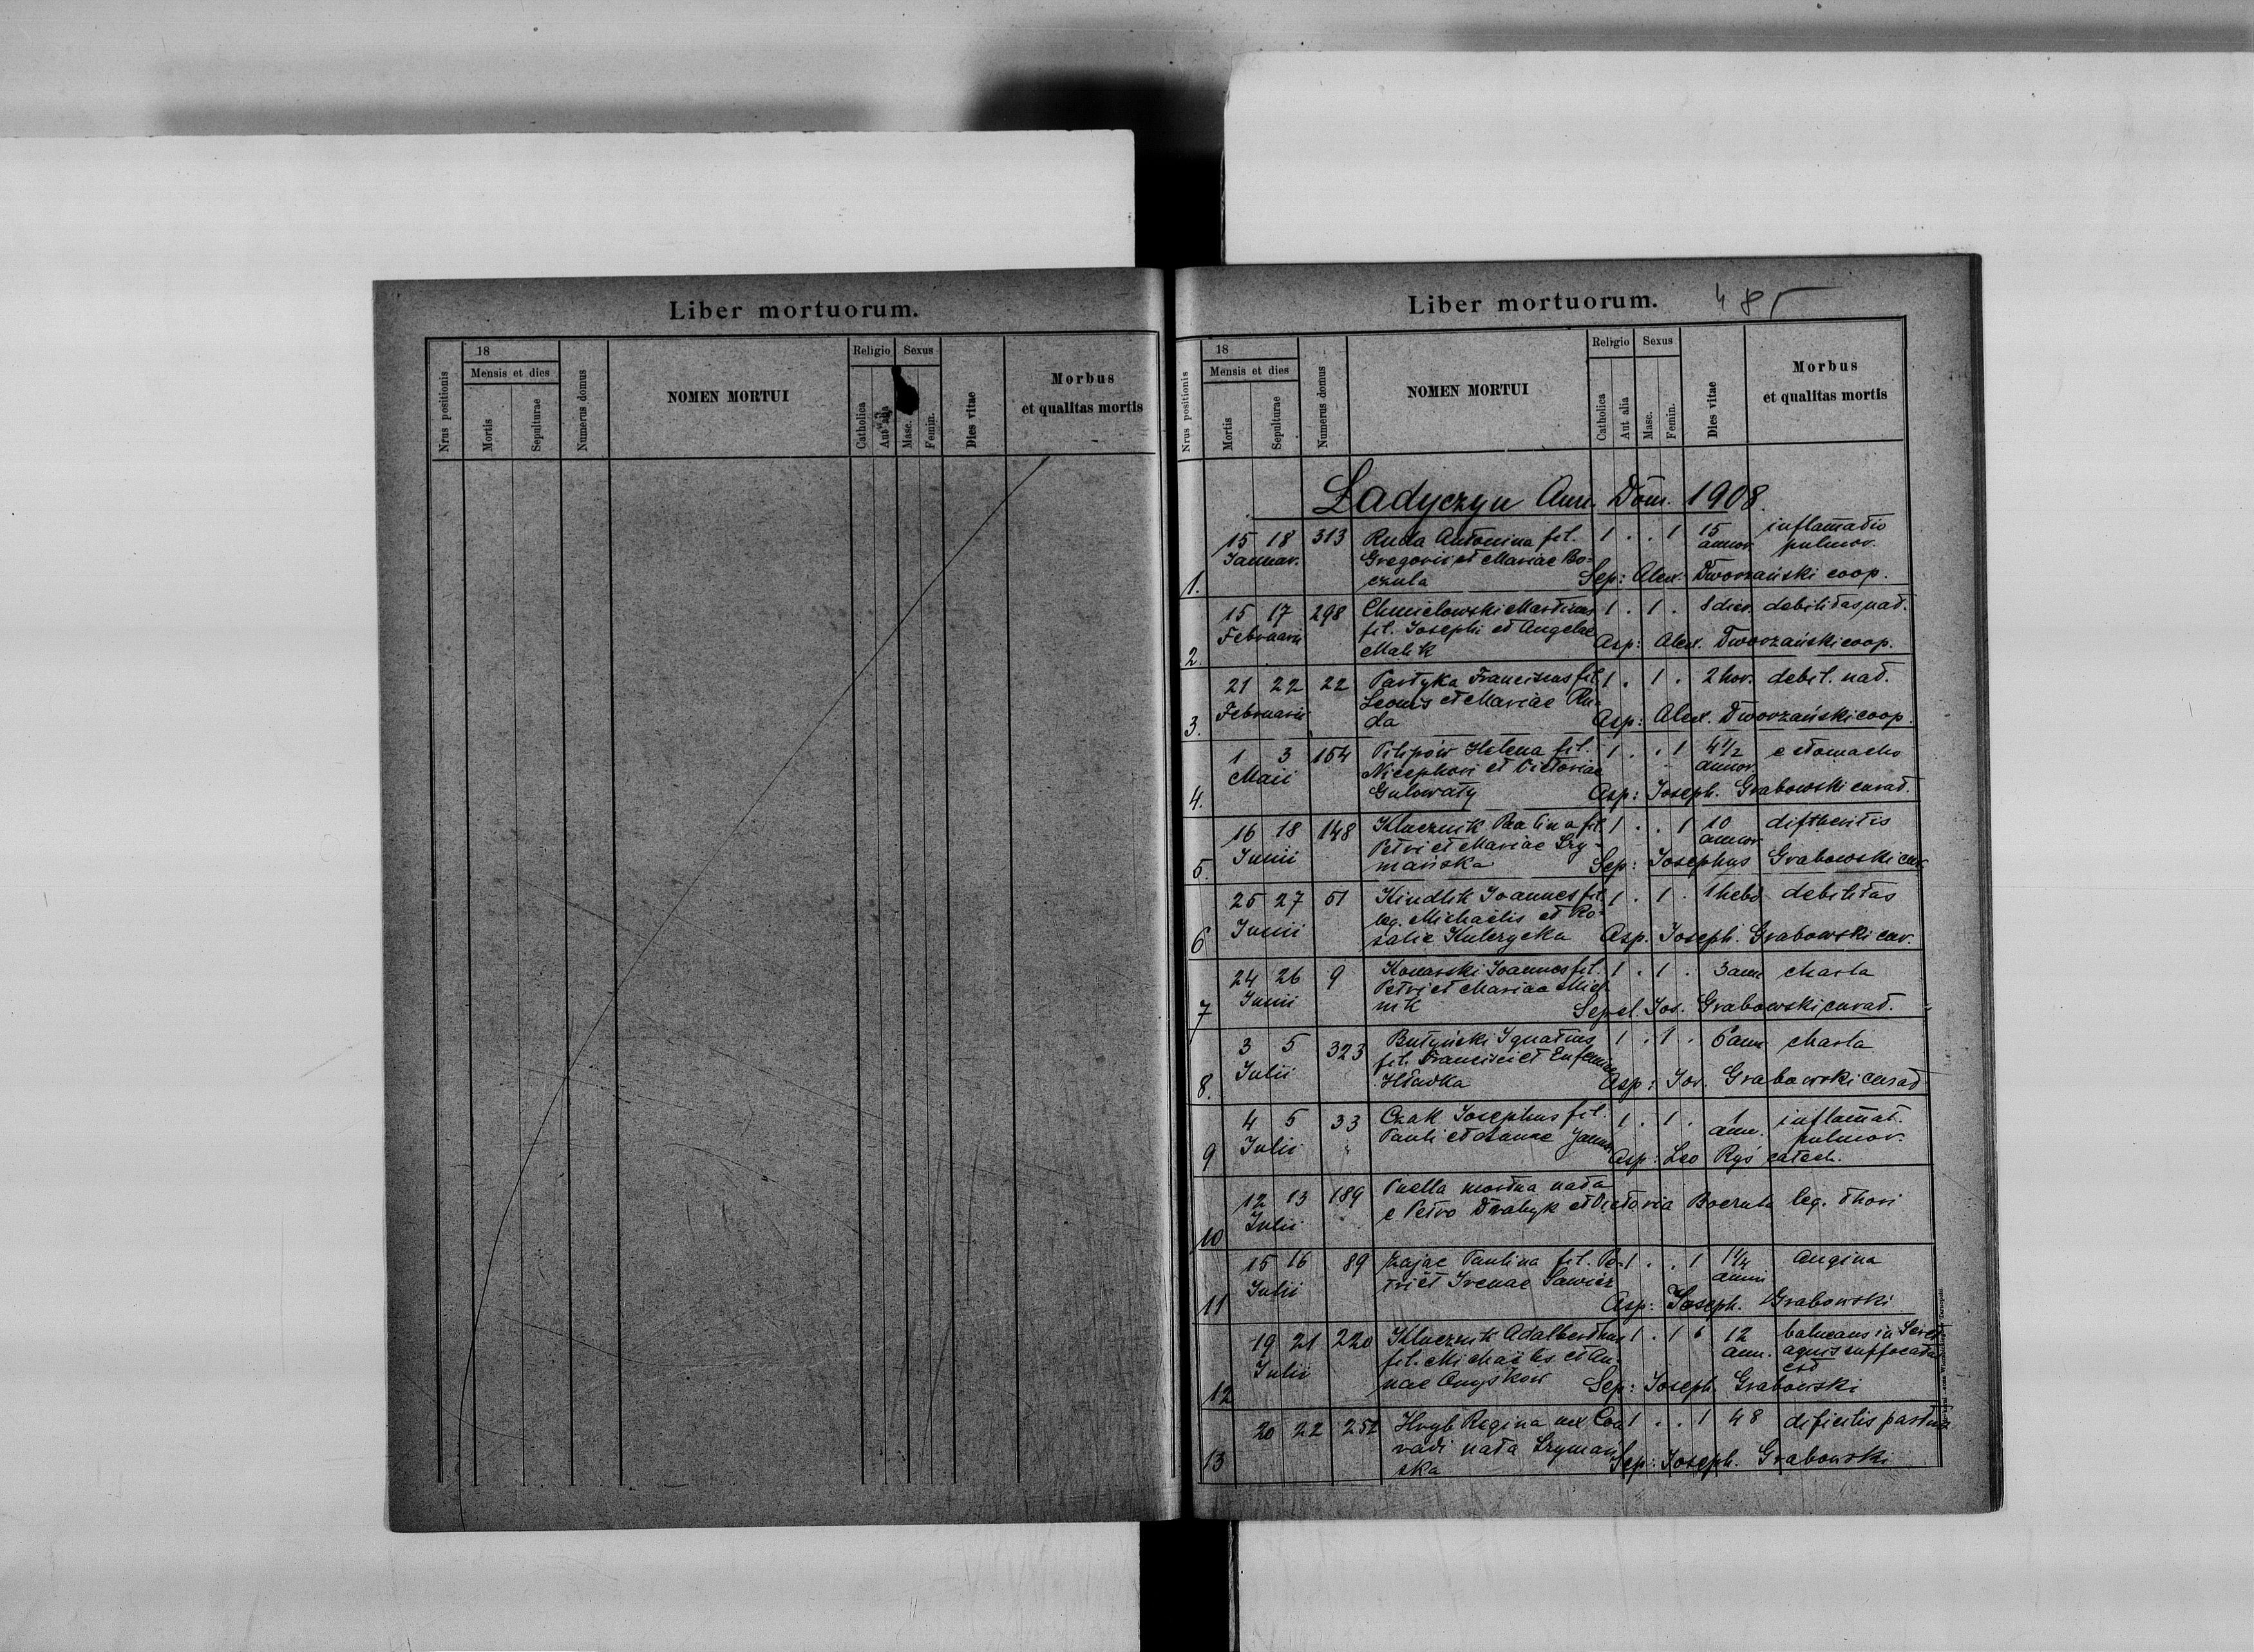 Liber mortuorum.
Nrus positionis
18
Mensis et dies
Mortis
Sepulturae
Numerus domus
NOMEN MORTUI
Religio
Catholica
Aut alia
Sexus
Masc.
Femin.
Dies vitae
Morbus
et qualitas mortis
Liber mortuorum. 485
Nrus positionis
18
Mensis et dies
Mortis
Sepulturae
Numerus domus
NOMEN MORTUI
Religio
Catholica
Aut alia
Sexus
Masc.
Femin.
Dies vitae
Morbus
et qualitas mortis
Ładyczyn Ann. Dom. 1908.
15 18 313 Ruda Antonina fil. 1 . . 1 15 inflamatio
Januar. Gregorii et Mariae Bo- annor. pulmon.
1. czula Sep: Alex. Dworzański coop.
15 17 298 Chmielowski Martinus 1 . 1 . 8 dier. debilitas nat.
Februarii fil. Josephi et Angelae
2. Malik Asp: Alex. Dworzański coop.
21 22 22 Partyka Franciscus fil. 1 . 1 . 2 hor. debil. nat.
Februarii Leonis et Mariae Ru-
3. da Asp: Alex. Dworzański coop.
1 3 154 Pilipów Helena fil. 1 . . 1 4 1/2 e stomacho
Maii Nicephori et Victoriae annor.
4. Gulowaty Asp: Joseph. Grabowski curat.
16 18 148 Klucznik Paulina fil. 1 . . 1 10 diftheritis
Junii Petri et Mariae Szy- annor.
5. mańska Sep: Josephus Grabowski cur.
25 27 51 Kindlik Joannes fil. 1 . 1 . 1 hebd. debilitas
Junii leg. Michaëlis et Ro-
6 salie Kulczycka Asp. Joseph. Grabowski cur.
24 26 9 Konarski Joannes fil. 1 . 1 . 3 ann charla
Junii Petri et Mariae
7 nik Sepel. Jos. Grabowski curat.
3 5 323 Butyński Ignatius 1 . 1 . 6 ann charla
Julii fil. Francisci et Eufemiae
8. Hładka Asp: Jos. Grabowski curat
4 5 33 Czak Josephus fil. 1 . 1 . 1 inflamat.
Julii " Pauli et Annae ann. pulmon.
9 Asp: Leo Ryś catech.
12 13 189 Puella mortua nata
Julii e Petro Drabyk et Victoria Boczula leg. thori
10
15 16 89 Zając Paulina fil. Pe- 1 . . 1 1 1/4 Angina
Julii tri et Irenae Sawicz anni
11 Asp: Joseph. Grabowski
19 21 220 Klucznik Adalberthus 1 . 1 12 balneans in Seret
Julii fil. Michaëlis et An- ann. aquis suffocatus
12 nae Onyśkow est
Sep: Joseph. Grabowski
20 22 252 Hryb Regina ux. Con- 1 . . 1 48 deficitis partum
radi nata Szymań-
13 ska Sep: Joseph. Grabowski